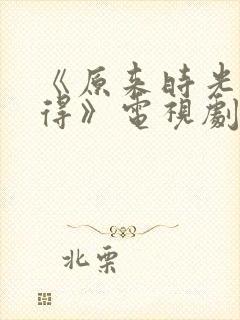 《原来時光
得》電視劇
北栗